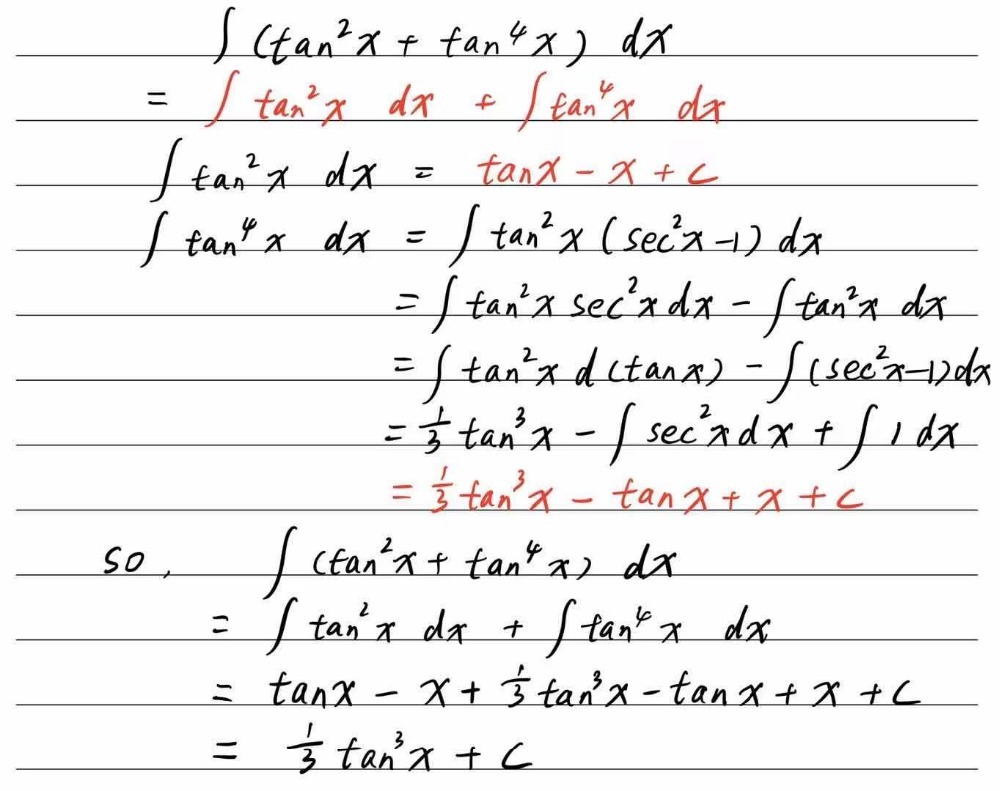 ∫ (tan²x + tan⁴x) dx
= ∫ tan²x dx + ∫ tan⁴x dx
∫ tan²x dx = tanx - x + c
∫ tan⁴x dx = ∫ tan²x (sec²x-1) dx
= ∫ tan²x sec²x dx - ∫ tan²x dx
= ∫ tan²x d(tanx) - ∫ (sec²x-1) dx
= 1/3 tan³x - ∫ sec²x dx + ∫ 1 dx
= 1/3 tan³x - tanx + x + c
so, ∫ (tan²x + tan⁴x) dx
= ∫ tan²x dx + ∫ tan⁴x dx
= tanx - x + 1/3 tan³x - tanx + x + c
= 1/3 tan³x + c